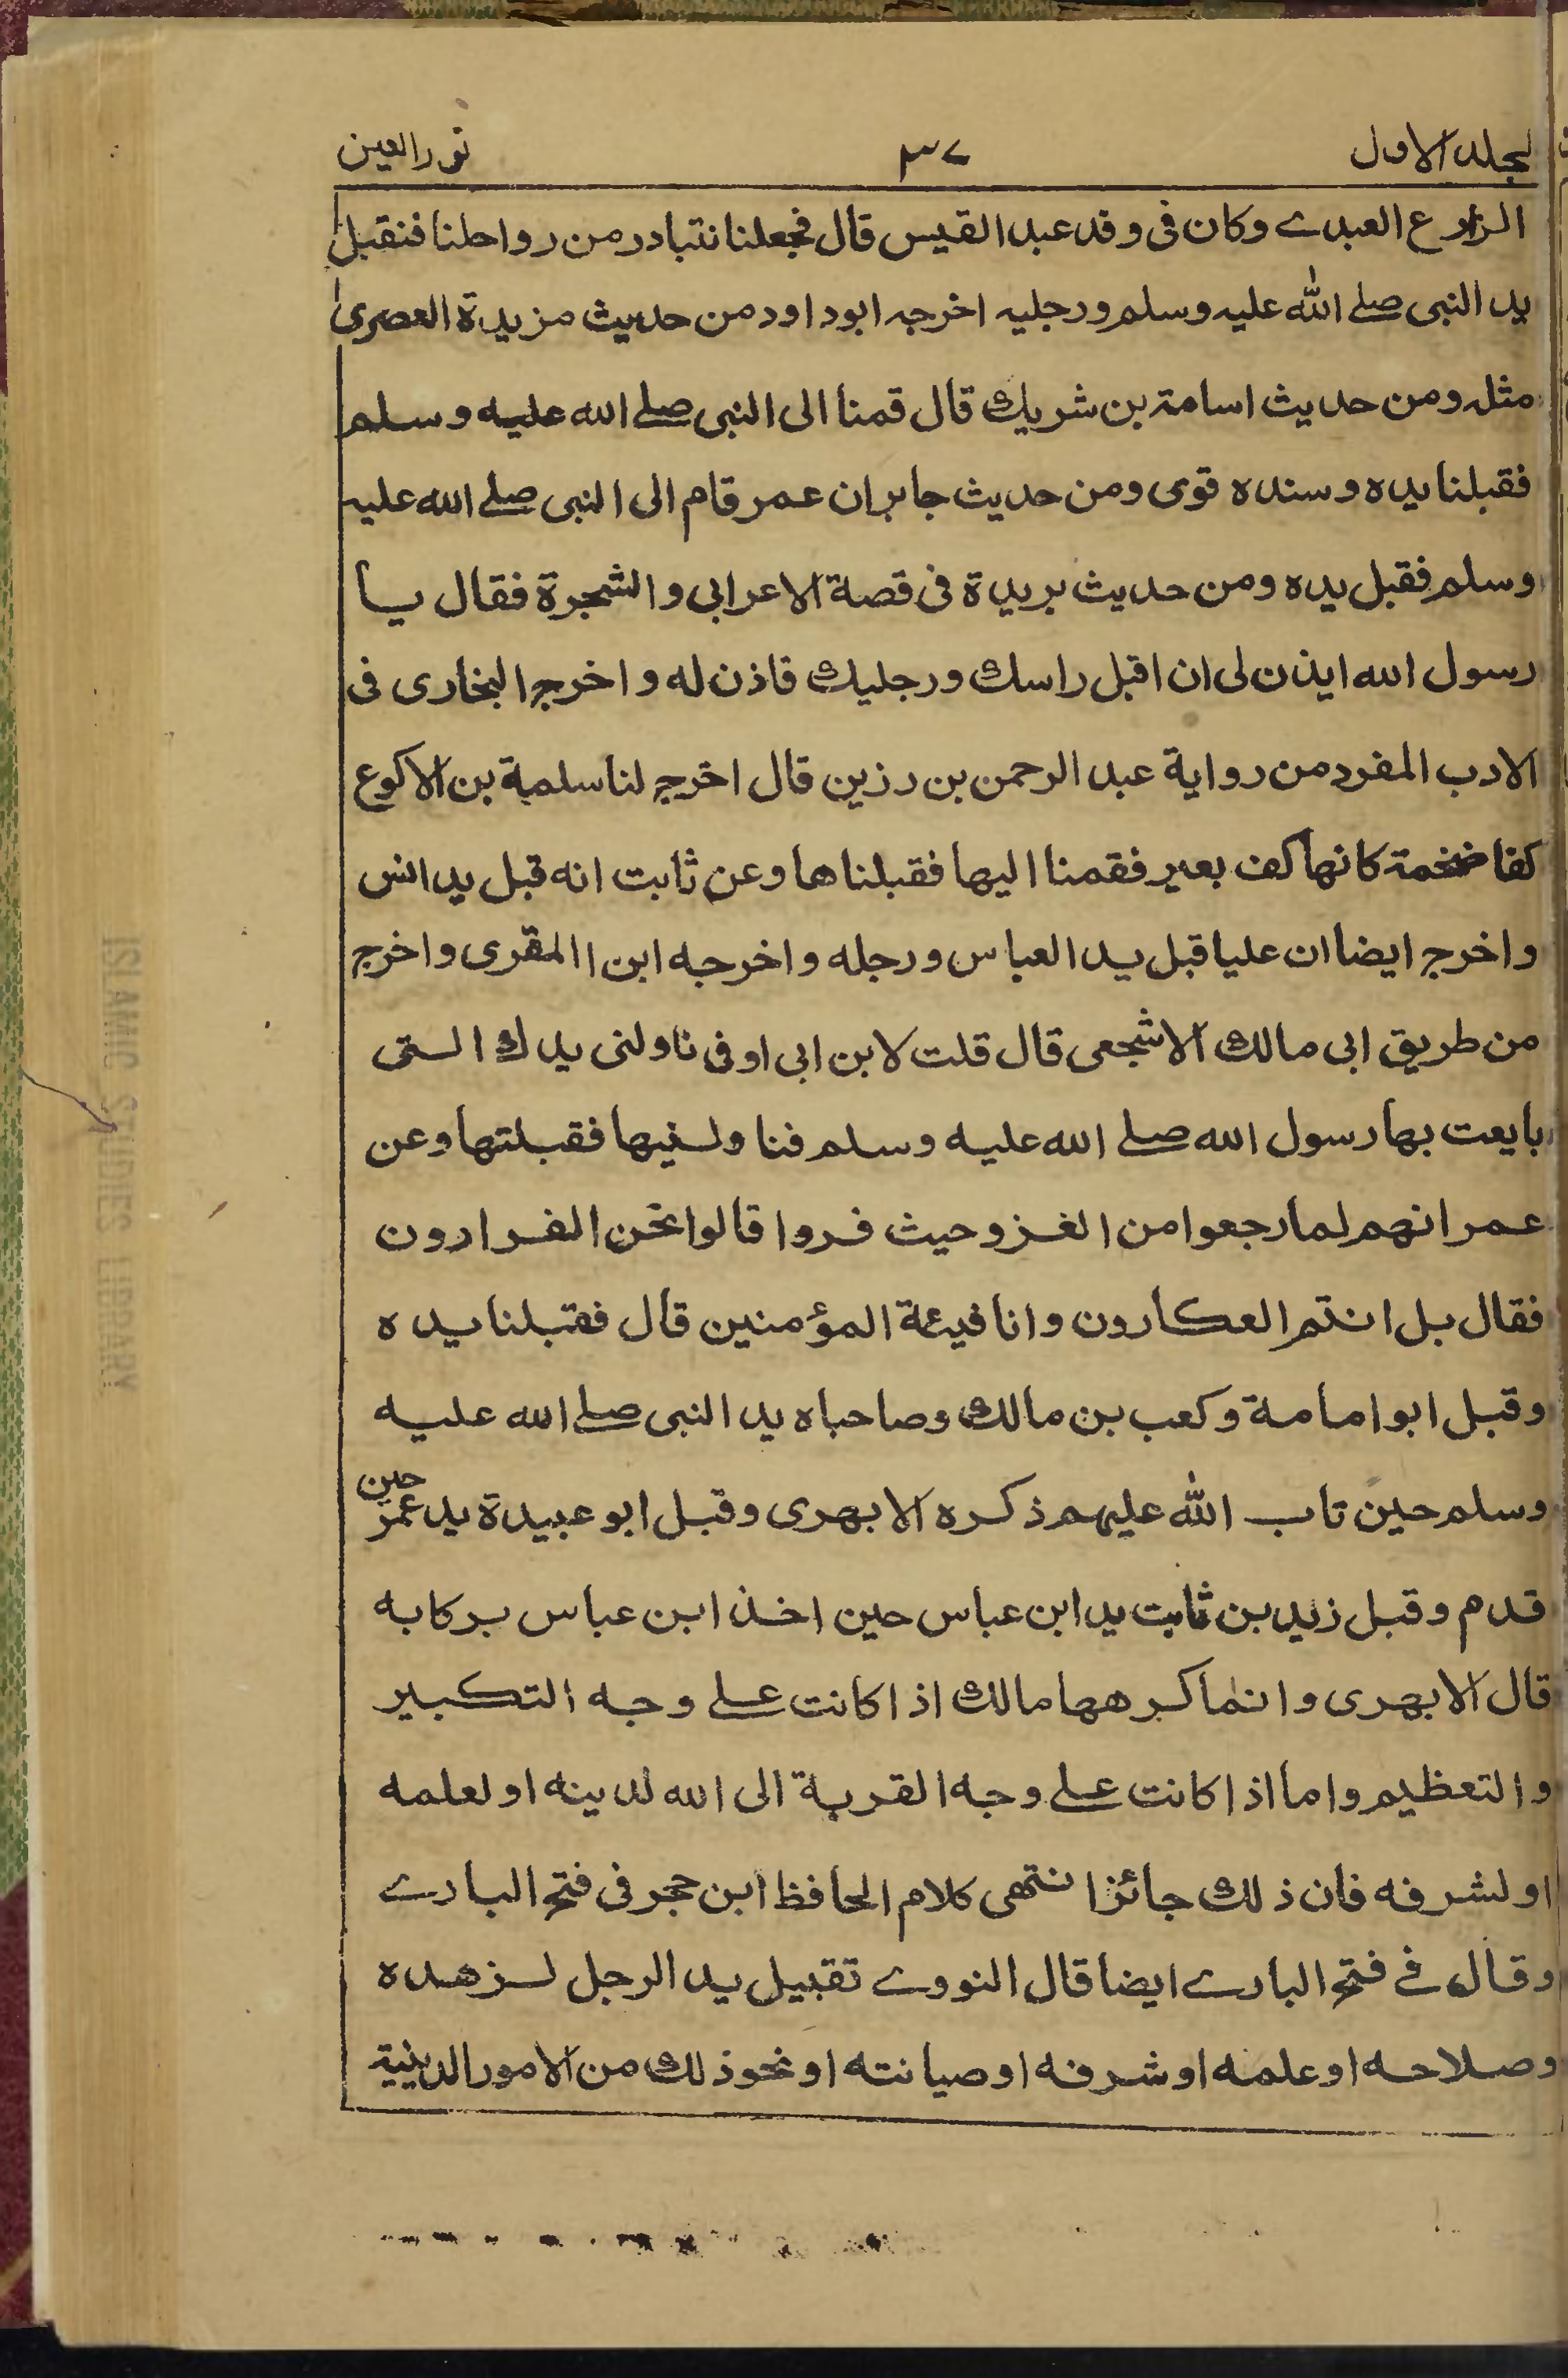 لجلد الاول ٣٧ نور العين
الزارع العبدے وكان فى وفد عبد القيس قال فجعلنا نتبادر من رواحلنا فنقبل
يد النبى صلے الله عليه وسلم ورجليه اخرجه ابوداود من حديث مزيدة العصرى
مثله ومن حديث اسامة بن شريك قال قمنا الى النبى صلے الله عليه وسلم
فقبلنا يده وسنده قوى ومن حديث جابر ان عمر قام الى النبى صلے الله عليه
وسلم فقبل يده ومن حديث بريدة فى قصة الاعرابى والشجرة فقال يا
رسول الله ايذن لى ان اقبل راسك ورجليك فاذن له واخرج البخارى فى
الادب المفرد من رواية عبد الرحمن بن رزين قال اخرج لنا سلمة بن الاكوع
كفا ضخمة كانها كف بعير فقمنا اليها فقبلناها وعن ثابت انه قبل يد انس
واخرج ايضا ان عليا قبل يد العباس ورجله واخرجه ابن االمقرى واخرج
من طريق ابى مالك الاشجعى قال قلت لابن ابى اوفى ناولنى يدك التى
بايعت بها رسول الله صلے الله عليه وسلم فناولنيها فقبلتها وعن
عمر انهم لما رجعوا من الغزو حيث فروا قالوا نحن الفرارون
فقال بل انتم العكارون وانا فيئة المؤمنين قال فقبلنا يده
وقبل ابو امامة وكعب بن مالك وصاحباه يد النبى صلے الله عليه
وسلم حين تاب الله عليهم ذكره الابهرى وقبل ابو عبيدة يد عمر حين
قدم وقبل زيد بن ثابت يد ابن عباس حين اخذ ابن عباس بركابه
قال الابهرى وانما كرهها مالك اذا كانت علے وجه التكبير
والتعظيم واما اذا كانت علے وجه القربة الى الله لدينه او لعلمه
او لشرفه فان ذلك جائز انتهى كلام الحافظ ابن حجر فى فتح البارے
وقال فے فتح البارے ايضا قال النووے تقبيل يد الرجل لزهده
وصلاحه او علمه او شرفه او صيانته او نحو ذلك من الامور الدينية
ISLAMIC STUDIES LIBRARY